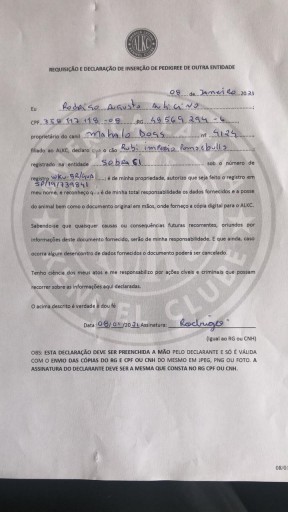 ALKC
REQUISIÇÃO E DECLARAÇÃO DE INSERÇÃO DE PEDIGREE DE OUTRA ENTIDADE
08 de Janeiro 2021
Eu Rodrigo Augusto
CPF RG 48569294-6
proprietário do canil Mahalo Dogs nº 4124
filiado ao ALKC, declaro que o cão Rubi
registrado na entidade Sobraci sob o número de
registro é de minha propriedade, autorizo que seja feito o registro em
meu nome, e reconheço que é de minha total responsabilidade os dados fornecidos e a posse
do animal bem como o documento original em mãos, onde forneço a cópia digital para o ALKC.
Sabendo-se que quaisquer causas ou consequências futuras recorrentes, oriundos por
informações deste documento fornecido, serão de minha responsabilidade. E que ainda, caso
ocorra algum desencontro de dados fornecidos o documento poderá ser cancelado.
Tenho ciência dos meus atos e me responsabilizo por ações cíveis e criminais que possam
recorrer sobre as informações aqui declaradas.
O acima descrito é verdade e dou fé.
Data: 08/01/2021 Assinatura: Rodrigo
(Igual ao RG ou CNH)
OBS: ESTA DECLARAÇÃO DEVE SER PREENCHIDA A MÃO PELO DECLARANTE E SÓ É VÁLIDA
COM O ENVIO DAS CÓPIAS DO RG E CPF OU CNH DO MESMO EM JPEG, PNG OU FOTO. A
ASSINATURA DO DECLARANTE DEVE SER A MESMA QUE CONSTA NO RG CPF OU CNH.